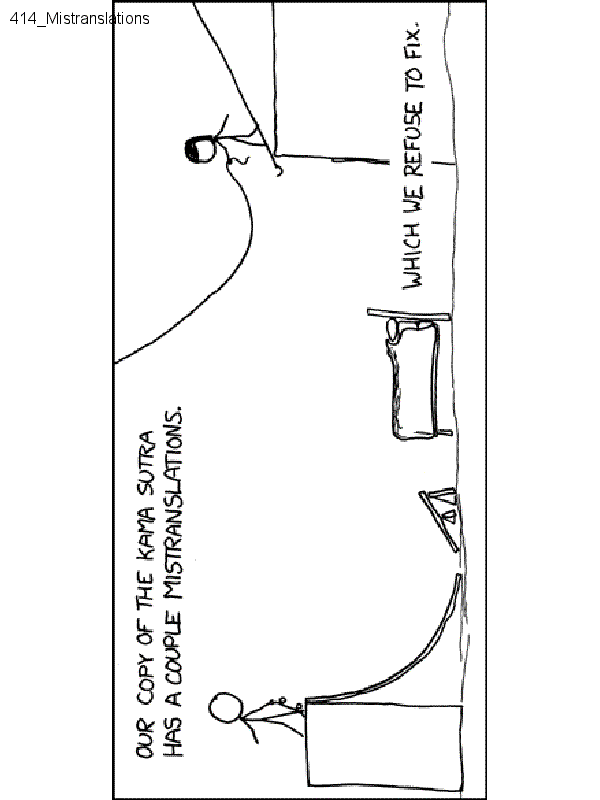 414_Mistranslations
OUR COPY OF THE KAMA SUTRA
HAS A COUPLE MISTRANSLATIONS.
WHICH WE REFUSE TO FIX.